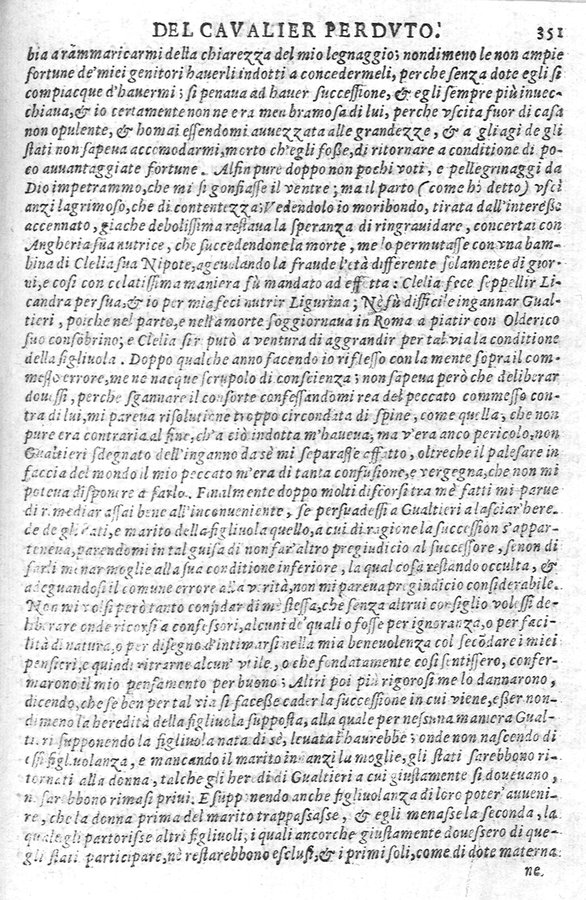 DEL CAVALIER PERDVTO. 351
bia a rammaricarmi della chiarezza del mio legnaggio; nondimeno le non ampie
fortune de'miei genitori hauerli indotti a concedermeli, perche senza dote egli si
compiacque d'hauermi; si penaua ad hauer successione, & egli sempre più inuec-
chiaua, & io certamente non ne era men bramosa di lui, perche vscita fuor di casa
non opulente, & homai essendomi auuezzata alle grandezze, & a gli agi de gli
stati non sapeua accomodarmi, morto ch'egli foße, di ritornare a conditione di po-
co auuantaggiate fortune. Alfin pure doppo non pochi voti, e pellegrinaggi da
Dio impetrammo, che mi si gonfiasse il ventre; ma il parto (come hò detto) vscì
anzi lagrimoso, che di contentezza; Vedendolo io moribondo, tirata dall'intereße
accennato, giache debolissima restaua la speranza di ringrauidare, concertai con
Angheria sua nutrice, che succedendone la morte, me lo permutasse con vna bam-
bina di Clelia sua Nipote, ageuolando la fraude l'età differente solamente di gior-
ni, e così con celatissima maniera fù mandato ad effetto: Clelia fece seppellir Li-
candra per sua, & io per mia feci nutrir Ligurina; Nè fù difficile ingannar Gual-
tieri, poiche nel parto, e nella morte soggiornaua in Roma a piatir con Olderico
suo consobrino; e Clelia si riputò a ventura di aggrandir per tal via la conditione
della figliuola. Doppo qualche anno facendo io riflesso con la mente sopra il com-
messo errore, me ne nacque scrupolo di conscienza; non sapeua però che deliberar
douessi, perche sgannare il consorte confessandomi rea del peccato commesso con-
tra di lui, mi pareua risolutione troppo circondata di spine, come quella, che non
pure era contraria al fine, ch'a ciò indotta m'haueua, ma v'era anco pericolo, non
Gualtieri sdegnato dell'inganno da sè mi separasse affatto, oltreche il palesare in
faccia del mondo il mio peccato m'era di tanta confusione, e vergegna, che non mi
poteua disponere a farlo. Finalmente doppo molti discorsi tra me fatti mi parue
di rimediar assai bene all'inconueniente, se persuadessi a Gualtieri a lasciar here-
de de gli stati, e marito della figliuola quello, a cui di ragione la succession s'appar-
teneua, parendomi in tal guisa di non far'altro pregiudicio al successore, se non di
farli menar moglie alla sua conditione inferiore, la qual cosa restando occulta, &
adeguandosi il comune errore alla verità, non mi pareua pregiudicio considerabile.
Non mi volsi però tanto confidar di me stessa, che senza altrui consiglio volessi de-
liberare onde ricorsi a confessori, alcuni de'quali o fosse per ignoranza, o per faci-
lità di natura, o per disegno d'intimarsi nella mia beneuolenza col secōdare i miei
pensieri, e quindi ritrarne alcun' vtile, o che fondatamente così sentissero, confer-
marono il mio pensamento per buono; Altri poi più rigorosi me lo dannarono,
dicendo, che se ben per tal via si faceße cader la successione in cui viene, eßer non-
dimeno la heredità della figliuola supposta, alla quale per nessuna maniera Gual-
tieri supponendo la figliuola nata di sè, leuata l'haurebbe; onde non nascendo di
essi figliuolanza, e mancando il marito inanzi la moglie, gli stati sarebbono ri-
tornati alla donna, talche gli heredi di Gualtieri a cui giustamente si doueuano,
ne sarebbono rimasi priui. E supponendo anche figliuolanza di loro poter' auueni-
re, che la donna prima del marito trappassasse, & egli menasse la seconda, la
quale gli partorisse altri figliuoli; i quali ancorche giustamente douessero di que-
gli stati participare, nè restarebbono esclusi, & i primi soli, come di dote materna
ne